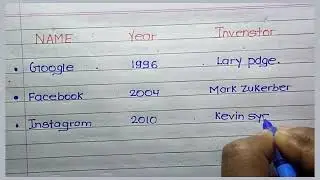 NAME Year Invenstor
• Google 1996 Lary page.
• Facebook 2004 Mark Zukerber
• Instagram 2010 Kevin sys